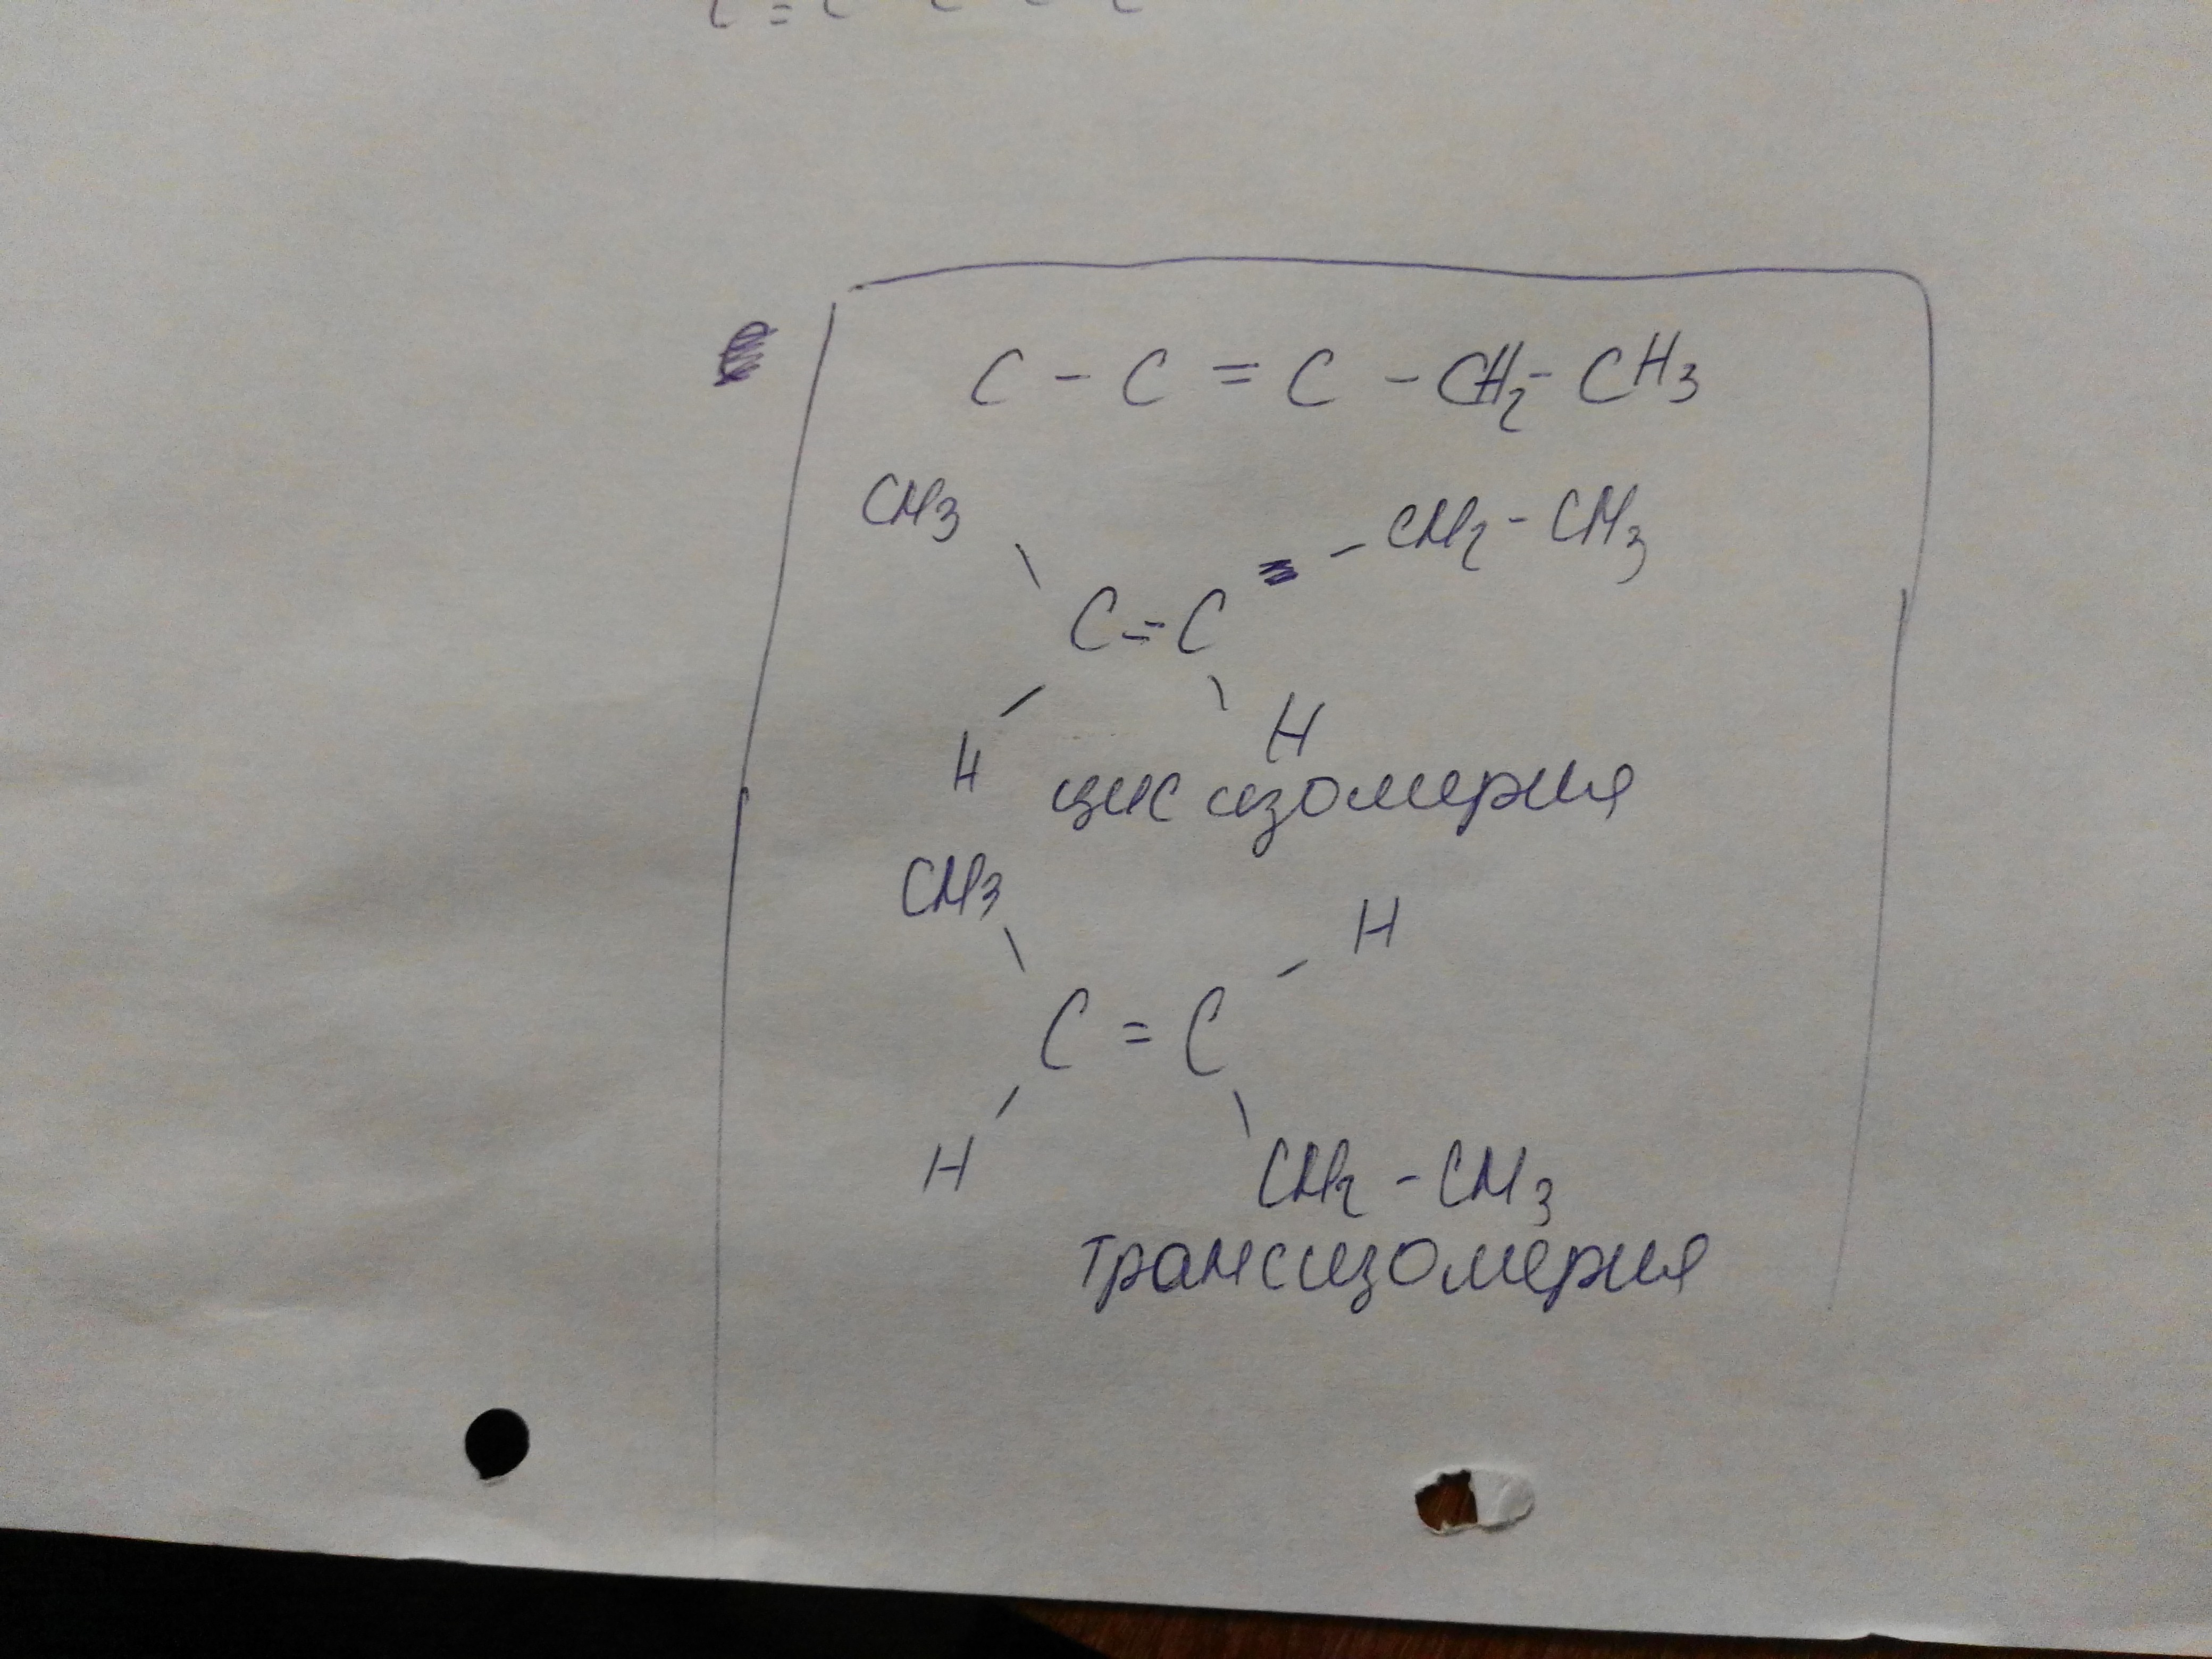 C - C = C - CH2 - CH3
CH3 - CH2 - CH3
C = C
H H
цис изомерия
CH3 H
C = C
H CH2 - CH3
трансизомерия